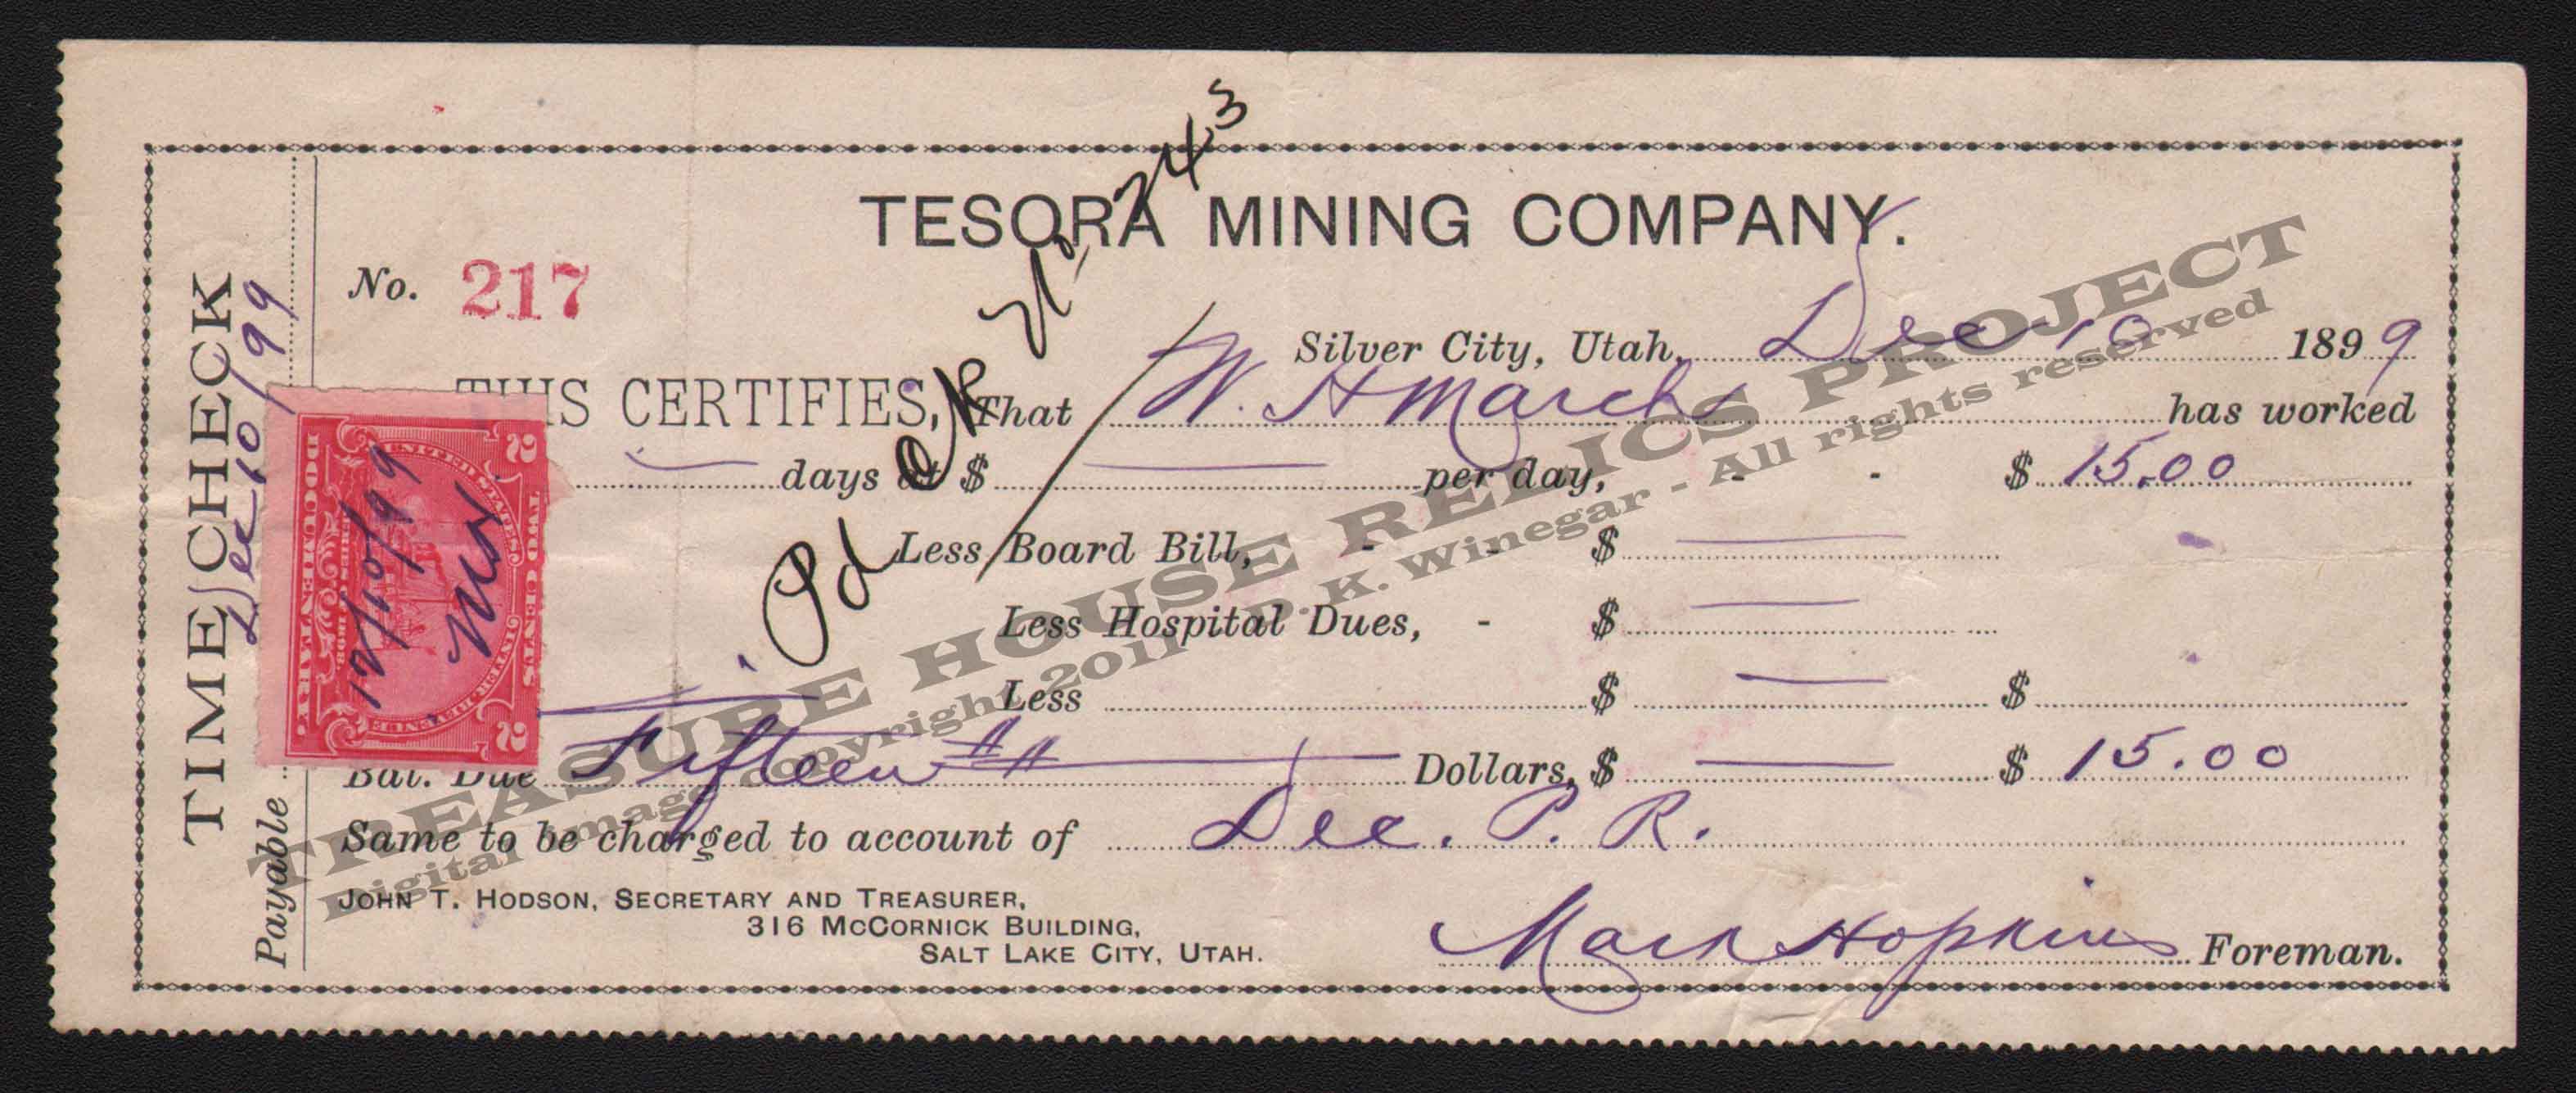 TESORA MINING COMPANY.
No. 217
Silver City, Utah, Dec 10 1899
THIS CERTIFIES, That W. H March has worked
days at $ per day, - - $ 15.00
Less Board Bill, - - $
Less Hospital Dues, - $
Less $ $
Bal. Due Fifteen Dollars, $ $ 15.00
Same to be charged to account of Dec. P. R.
JOHN T. HODSON, SECRETARY AND TREASURER,
316 MCCORNICK BUILDING,
SALT LAKE CITY, UTAH.
Mark Hopkins Foreman.
TIME CHECK
Payable Dec 10/99
Pd
243
UNITED STATES
INTER. REVENUE
DOCUMENTARY
SERIES OF 1898
TWO CENTS
2 2
12/10/99
M.H.
TREASURE HOUSE RELICS PROJECT
Digital image copyright 2011 D. K. Winegar - All rights reserved